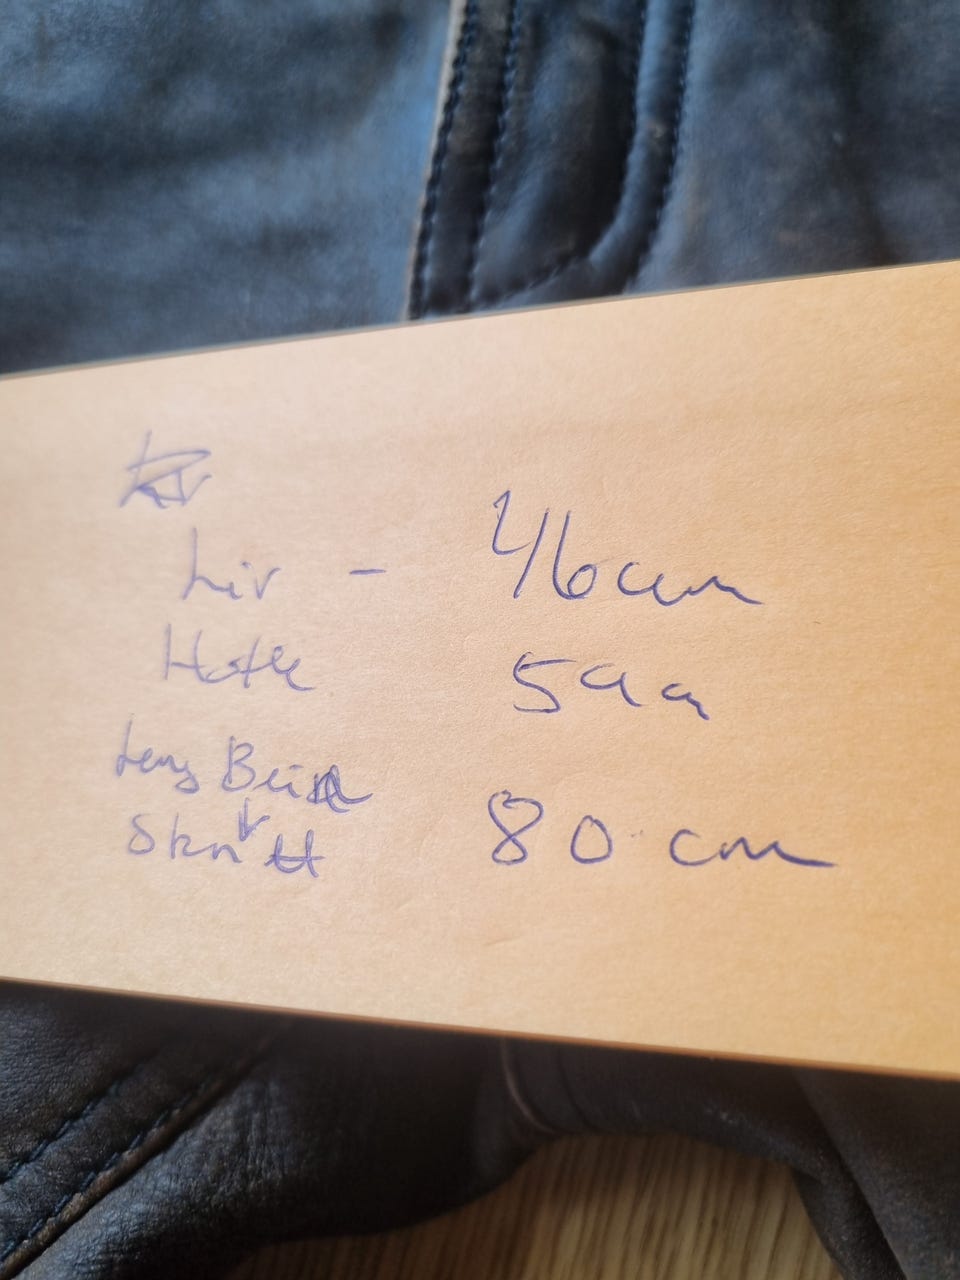 Liv - 46cm
Hofte 59cm
Leng Bein
Skritt 80 cm